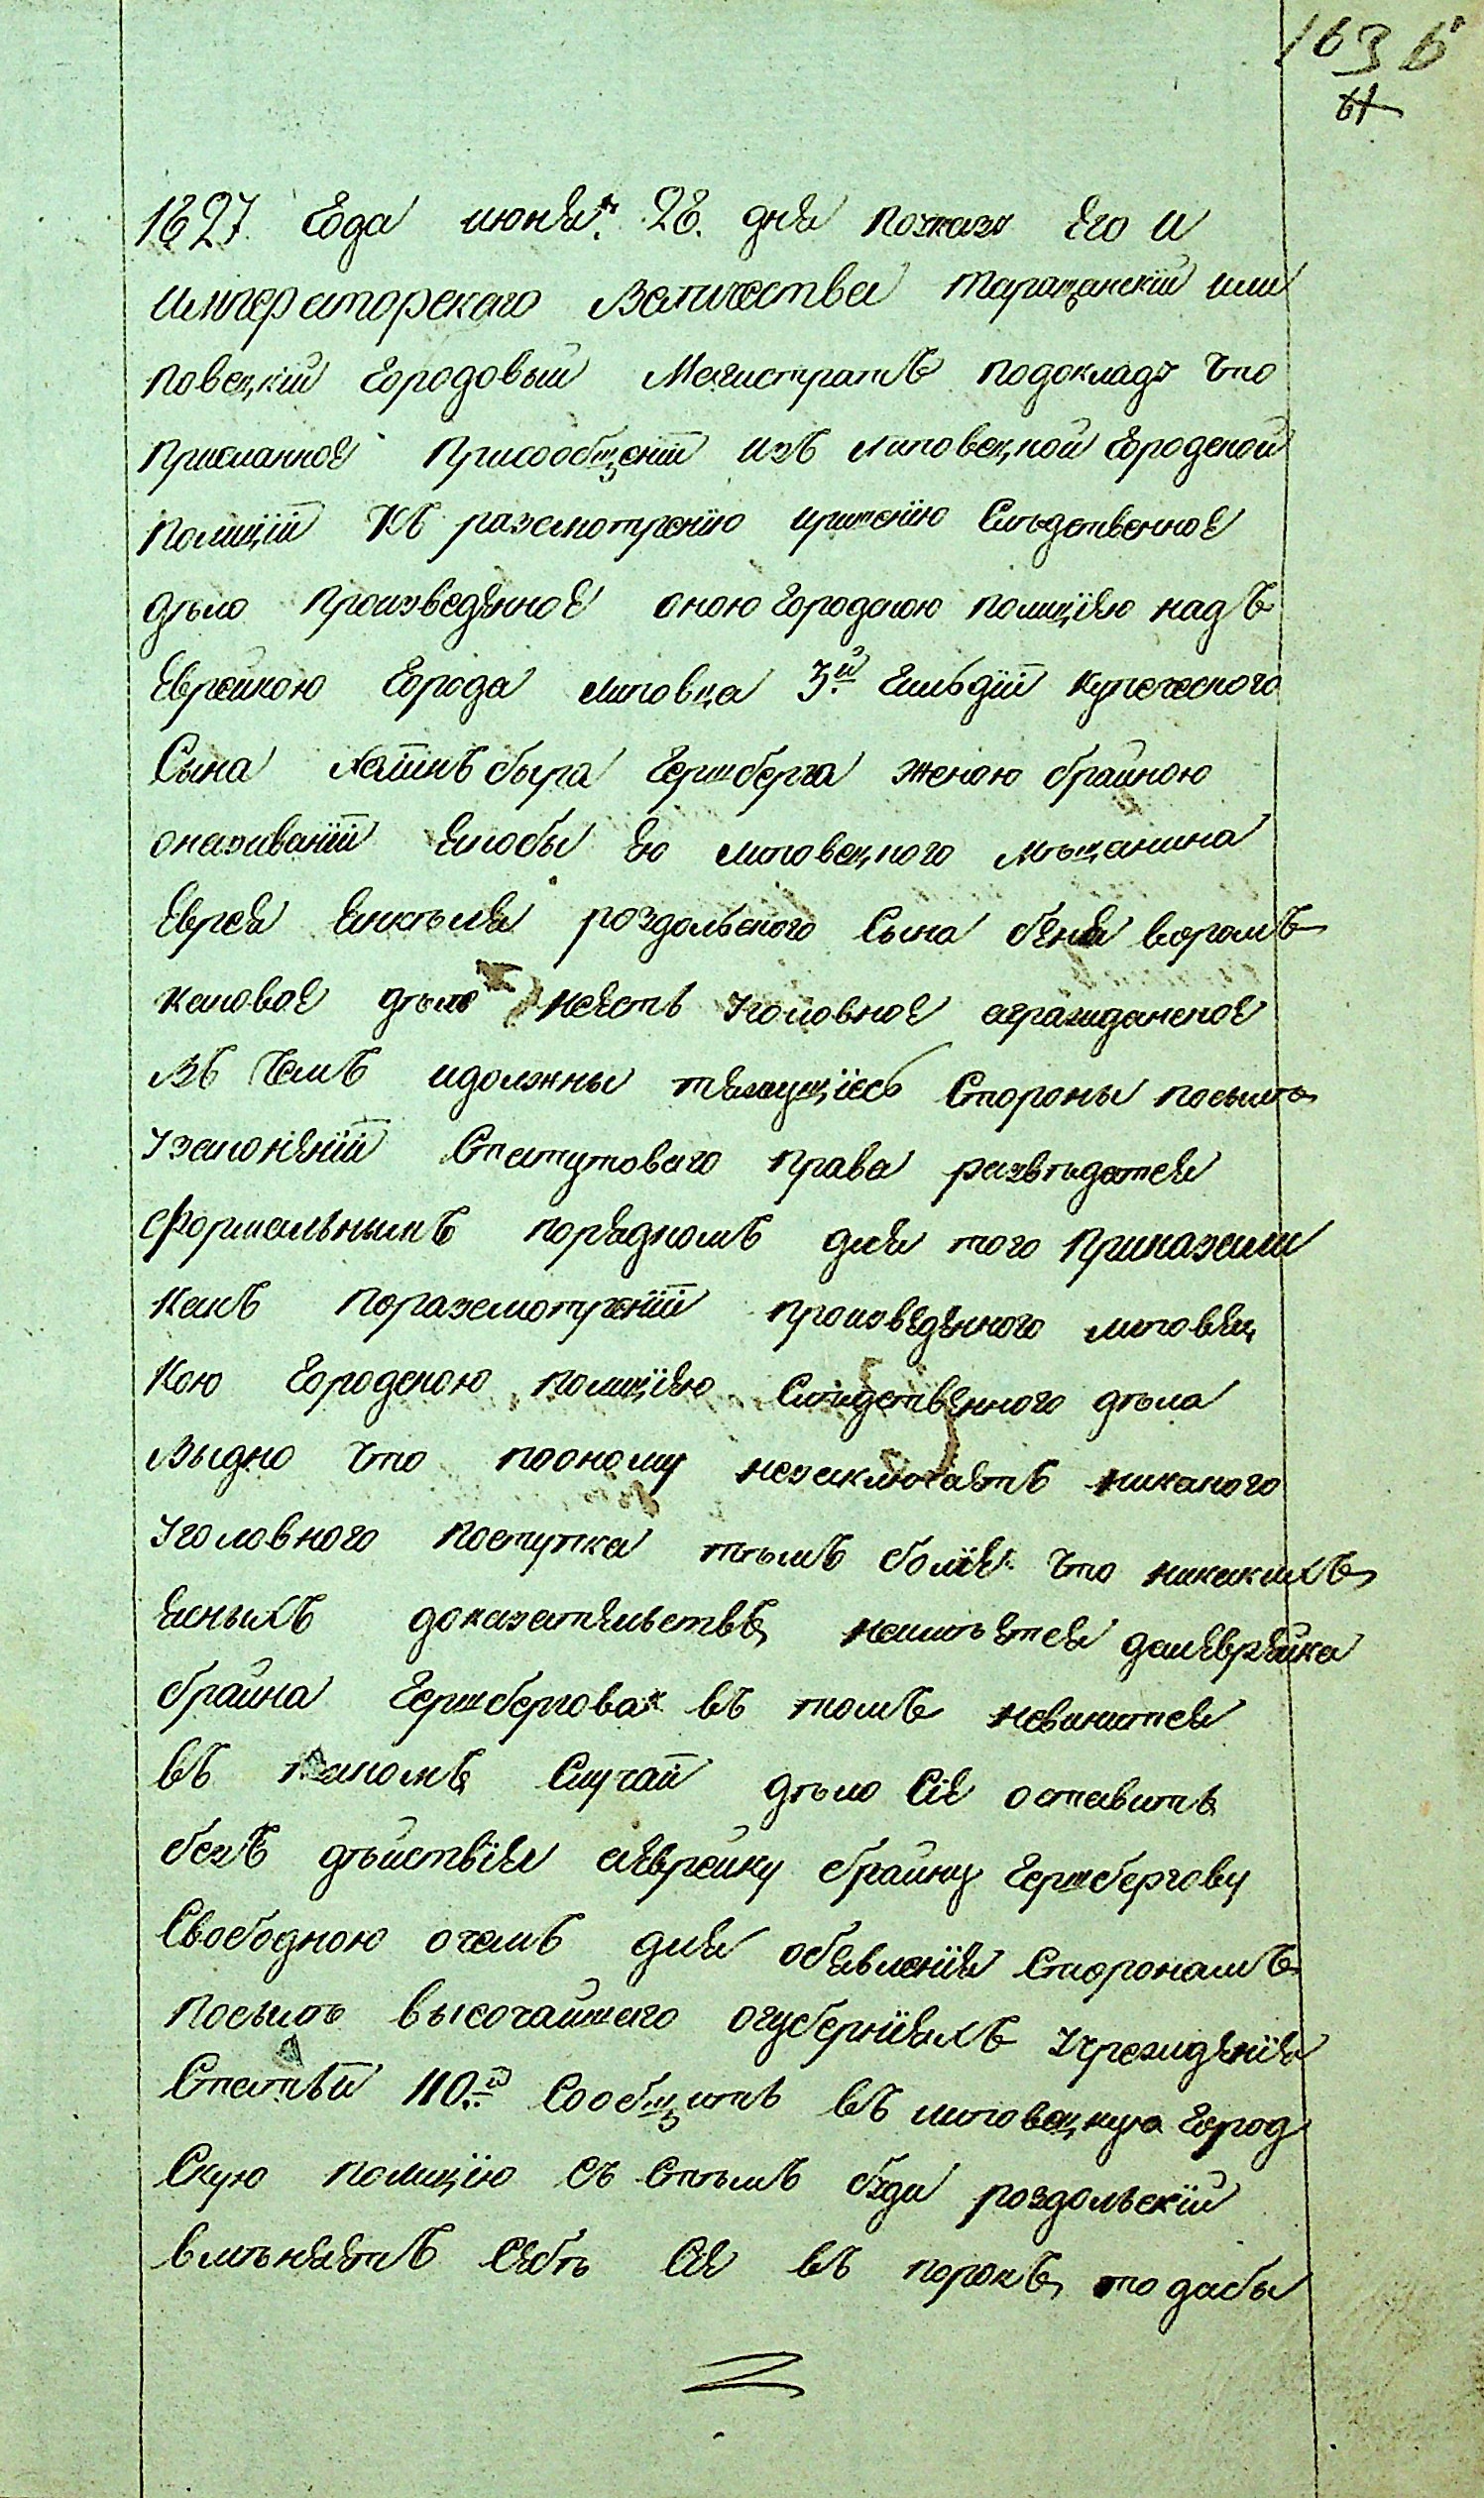 163 б
61
1827. Года июня. 28. дня поуказу Его И
императорского Величества таращанский или
повецкий городовый Магистратъ подокладу что
присланное присообщении изъ липовецкой городской
полиции къ разсмотрению ирешению Следственное
дѣло произведенное оною городскою полициею надъ
еврейкою города липовца 3й гильдии купеческого
Сына Гершберга женою брайною
оназивании якобы ею липовецкого мѣщанина
еврея роздольского Сына беня
каковое дѣло неесть уголовное агражданское
въ чемъ идолжны тяжущиесь Стороны посилѣ
узаконении Статутоваго права развѣдатся
формальнымъ порядкомъ для того приказали
какъ поразсмотрении произведенного липовец
кою городскою полициею Слидственного дѣла
выдно что пооному незаключаетъ никакого
уголовного поступка тѣмъ болие что никакихъ
ясныхъ доказательствъ неимѣется даиеврейка
брайна Гершбергова въ томъ невинится
въ такомъ Случаи дѣло Сие оставитъ
безъ дѣйствия аеврейку брайну Гершбергову
Свободною очемъ для обявления Сторонамъ
посилѣ высочайшего огубернияхъ учреждения
Статьи 110й Сообщить въ липовецкую город
Скую полицию съ Стѣмъ роздольский
вмѣняетъ Себѣ Сие въ порокъ то дабы